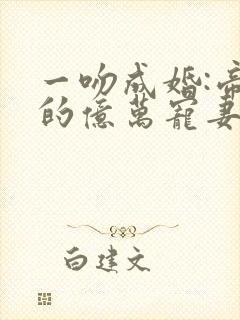 一吻成婚:帝
的億萬寵妻
白建文